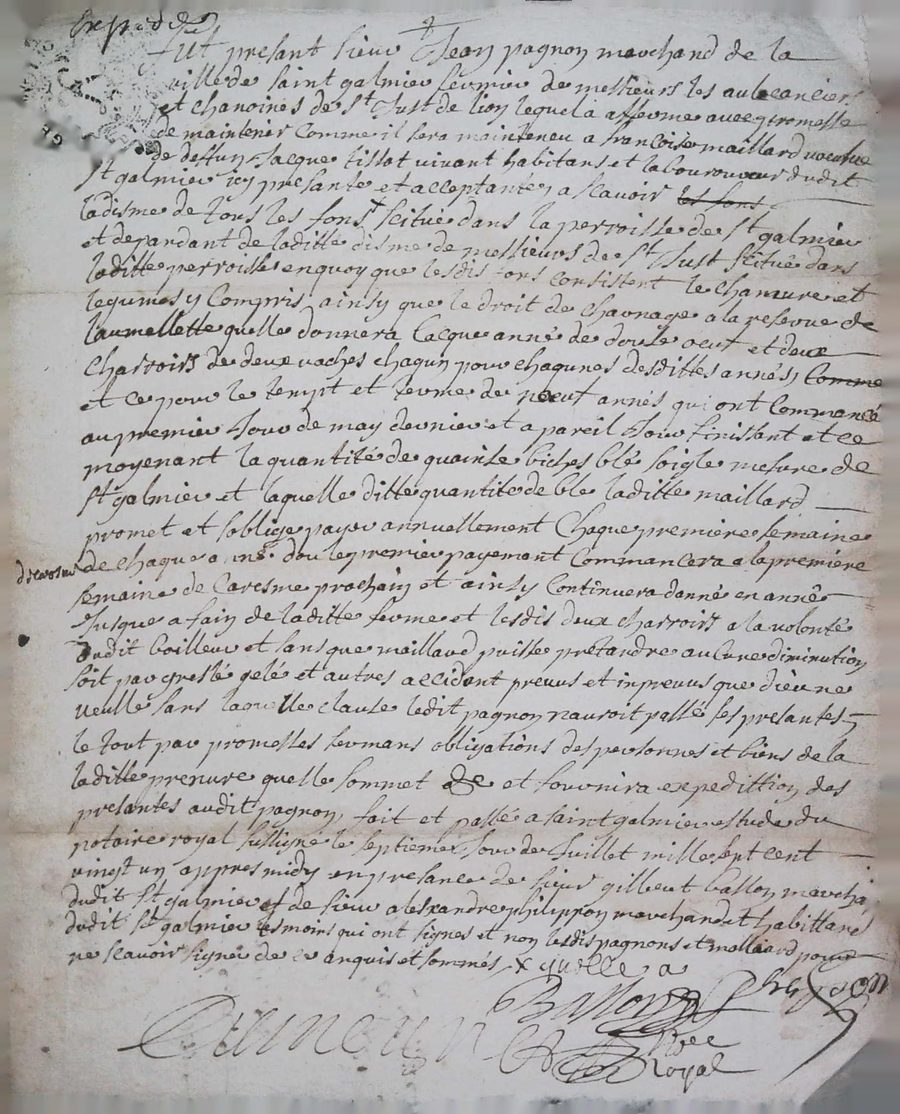 Expedié
Fut présant sieur Jean pagnon marchand de la
ville de saint galmier fermier de messieurs les
et chanoines de St Just de lion lequel a afferme avec promesse
de maintenir comme il sera mainteneu a françoise maillard
de deffun Jacque tissot vivant habitans et laboureur dudit
St galmier icy présante et acceptante, a scavoir les fons
ladisme de tous les fons scitué dans la perroisse de St galmier
et dépandant de laditte disme de messieurs de St Just scitué dans
laditte perroisse enquoy que lesdis fons consistent le chanvre et
legumes y compris ainsy que le droit de charnage a la reserve de
quelle donnera anné de douse oeuf et deux
charroirs de deux vaches chaqun pour chaqunes desdittes annés, comme
et ce pour le tempt et terme de noeuf annés qui ont commancé
au premier Jour de may dernier et a pareil Jour finissant et ce
moyenant la quantité de quainse biches blé soigle mesure de
St galmier et laquelle ditte quantité de blé laditte maillard
promet et soblige payer annuellement chaque première semaine
de chaque anné dou le premier payement commancera a la première
semaine de Caresme prochain et ainsy continuera danné en anné
Jusque a fain de laditte ferme et lesdis deux charroirs a la volonté
dudit bailleur et sans que maillard puisse prétandre aucune diminution
soit par greslé gelé et autres accidant prevus et inprevus que dieu ne
veulle sans laquelle clause ledit pagnon nauroit passé ses présantes,
le tout par promesses sermans obligations des personnes et biens de la
laditte prenure quelle sommet et fournira expedittion des
présantes audit pagnon, fait et passé a saint galmier estude du
notaire royal sussigné le septieme Jour de Juillet mille sept cent
vingt un appres midy en présance de sieur gilbeut ballon marchã
dudit St galmier et de sieur alexandre philippon marchand et habittans
dudit St galmier tesmoins qui ont signes et non lesdis pagnons et malliard pour
ne scavoir signer de ce anquis et sommés, x quelle a
Ballon Philippon
Royal